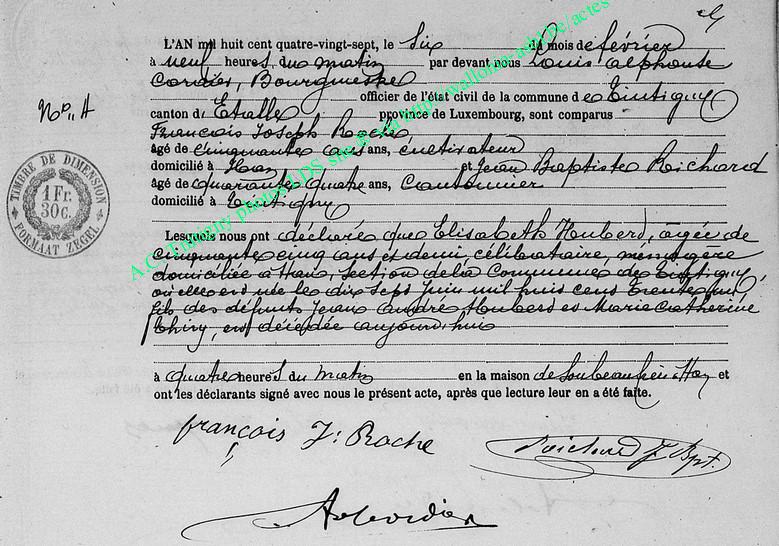 L'AN mil huit cent quatre-vingt-sept, le Six du mois de février
à neuf heures du matin par devant nous Louis Alphonse
Cordier, Bourgmestre
officier de l'état civil de la commune de Tintigny
canton d Etalle ppovince de Luxembourg, sont comparus
François Joseph Roche
âgé de cinquante ans ans, cultivateur
domicilié à Han et Jean Baptiste Richard
âgé de quarante quatre ans, Cantonnier
domicilié à Tintigny
Lesquels nous ont déclaré que Elisabeth Houberd, agée de
cinquante cinq ans et demi, célibataire, ménagère
domiciliée à Han, Section de la Commune de Tintigny,
où elle est née le dix Sept Juin mil huit cent trente un
fils des défunts Jean André Houberd et Marie Catherine
Thiry, est décédée aujourd'hui
à quatre heures du matin en la maison de Son beau frère à Han et
ont les déclarants signé avec nous le présent acte, après que lecture leur en a été faite.
françois J: Roche
Richard J Bpt.
A Cordier
No. 4
TIMBRE DE DIMENSION
1 Fr.
30 c.
FORMAAT ZEGEL
A.C. Tintigny photos LDS site via http://wallonia-asbl.be/actes